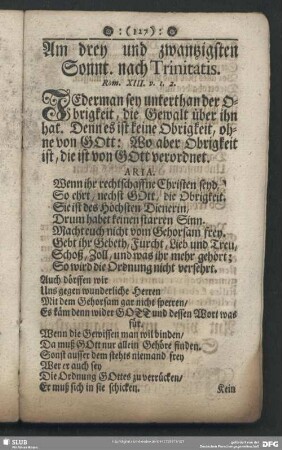 :(127):
Am drey und zwantzigsten
Sonnt. nach Trinitatis.
Rom. XIII. v. 1. 2.
JEderman sey unterthan der O-
brigkeit, die Gewalt über ihn
hat. Denn es ist keine Obrigkeit, oh-
ne von GOtt: Wo aber Obrigkeit
ist, die ist von GOtt verordnet.
ARIA.
Wenn ihr rechtschaffne Christen seyd,
So ehrt, nechst GOtt, die Obrigkeit,
Sie ist des Höchsten Dienerin,
Drum habet keinen starren Sinn.
Macht euch nicht vom Gehorsam frey,
Gebt ihr Gebeth, Furcht, Lieb und Treu,
Schoß, Zoll, und was ihr mehr gehört:
So wird die Ordnung nicht versehrt.
Auch dörffen wir
Uns gegen wunderliche Herren
Mit dem Gehorsam gar nicht sperren/
Es käm denn wider GOTT und dessen Wort was
für.
Wenn die Gewissen man will binden/
Da muß GOtt nur allein Gehöre finden.
Sonst ausser dem stehts niemand frey
Wer er auch sey
Die Ordnung GOttes zu verrücken/
Er muß sich in sie schicken.
Kein
SLUB
DFG